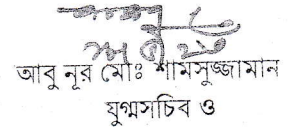 আবু নূর মোঃ শামসুজ্জামান
যুগ্মসচিব ও